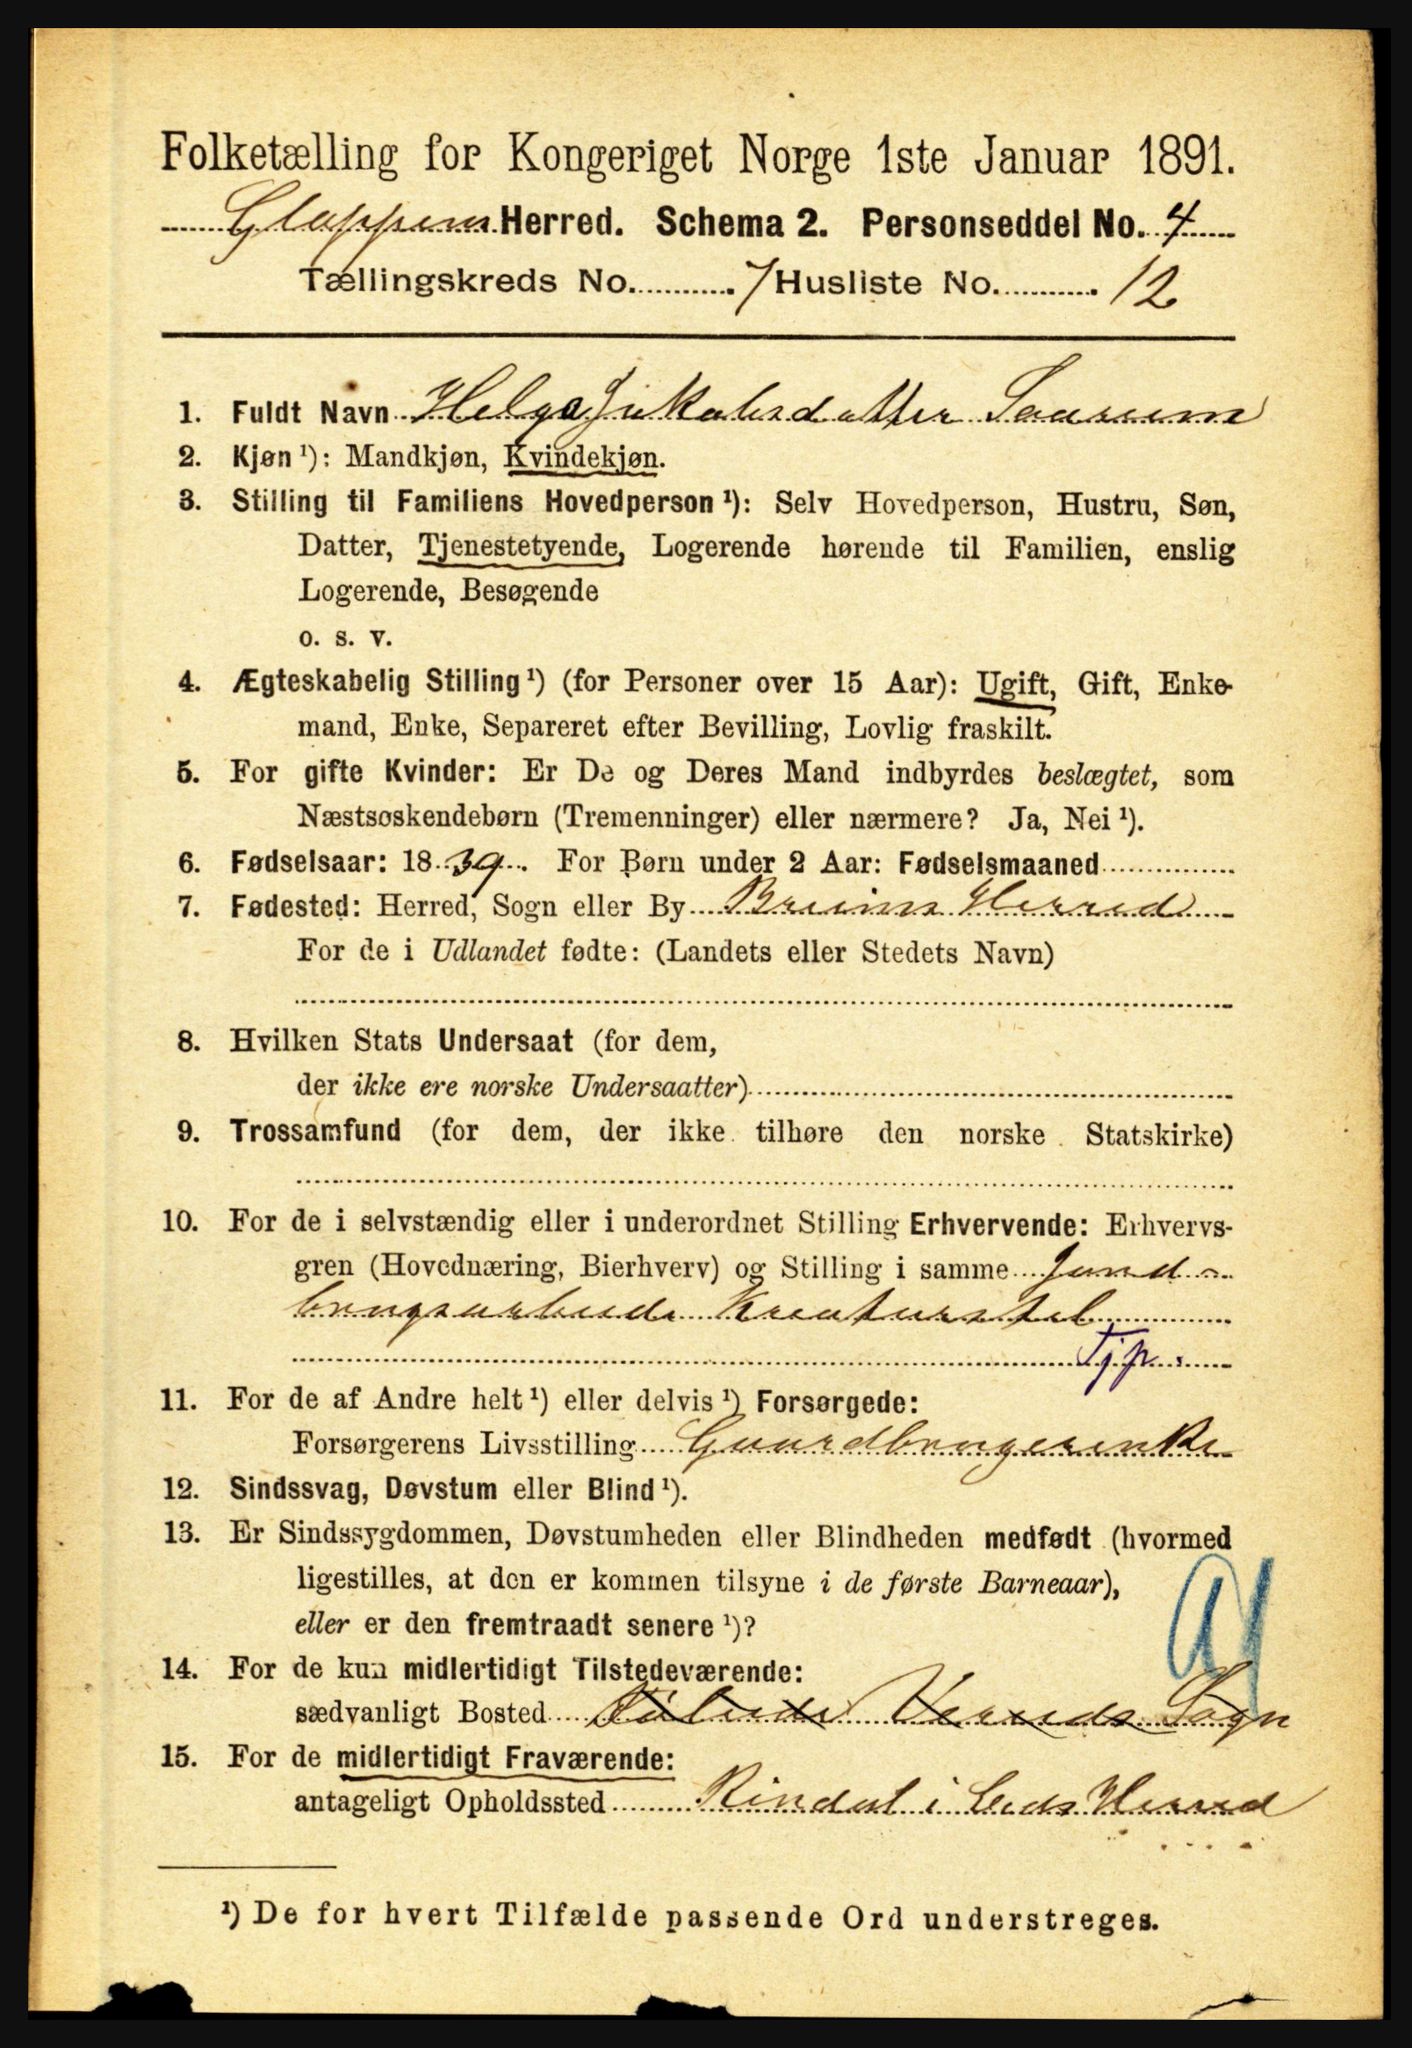 Folketælling for Kongeriget Norge 1ste Januar 1891.
Gloppens Herred. Schema 2. Personseddel No. 4
Tællingskreds No. 7 Husliste No. 12
1. Fuldt Navn Helga Jakobsdatter
2. Kjøn¹): Mandkjøn, Kvindekjøn.
3. Stilling til Familiens Hovedperson¹): Selv Hovedperson, Hustru, Søn,
Datter, Tjenestetyende, Logerende hørende til Familien, enslig
Logerende, Besøgende
o. s. v.
4. Ægteskabelig Stilling¹) (for Personer over 15 Aar): Ugift, Gift, Enke-
mand, Enke, Separeret efter Bevilling, Lovlig fraskilt.
5. For gifte Kvinder: Er De og Deres Mand indbyrdes beslægtet, som
Næstsøskendebørn (Tremenninger) eller nærmere? Ja, Nei¹).
6. Fødselsaar: 1839. For Børn under 2 Aar: Fødselsmaaned
7. Fødested: Herred, Sogn eller By Breims Herred
For de i Udlandet fødte: (Landets eller Stedets Navn)
8. Hvilken Stats Undersaat (for dem,
der ikke ere norske Undersaatter)
9. Trossamfund (for dem, der ikke tilhøre den norske Statskirke)
10. For de i selvstændig eller i underordnet Stilling Erhvervende: Erhvervs-
gren (Hovednæring, Bierhverv) og Stilling i samme Jord-
brugsarbeide Kreaturstel
Tjp.
11. For de af Andre helt¹) eller delvis¹) Forsørgede:
Forsørgerens Livsstilling Gaardbrugerenke
12. Sindssvag, Døvstum eller Blind¹).
13. Er Sindssygdommen, Døvstumheden eller Blindheden medfødt (hvormed
ligestilles, at den er kommen tilsyne i de første Barneaar),
eller er den fremtraadt senere¹)?
14. For de kun midlertidigt Tilstedeværende:
sædvanligt Bosted Sogn
15. For de midlertidigt Fraværende:
antageligt Opholdssted Rindal i Eids Herred
¹) De for hvert Tilfælde passende Ord understreges.